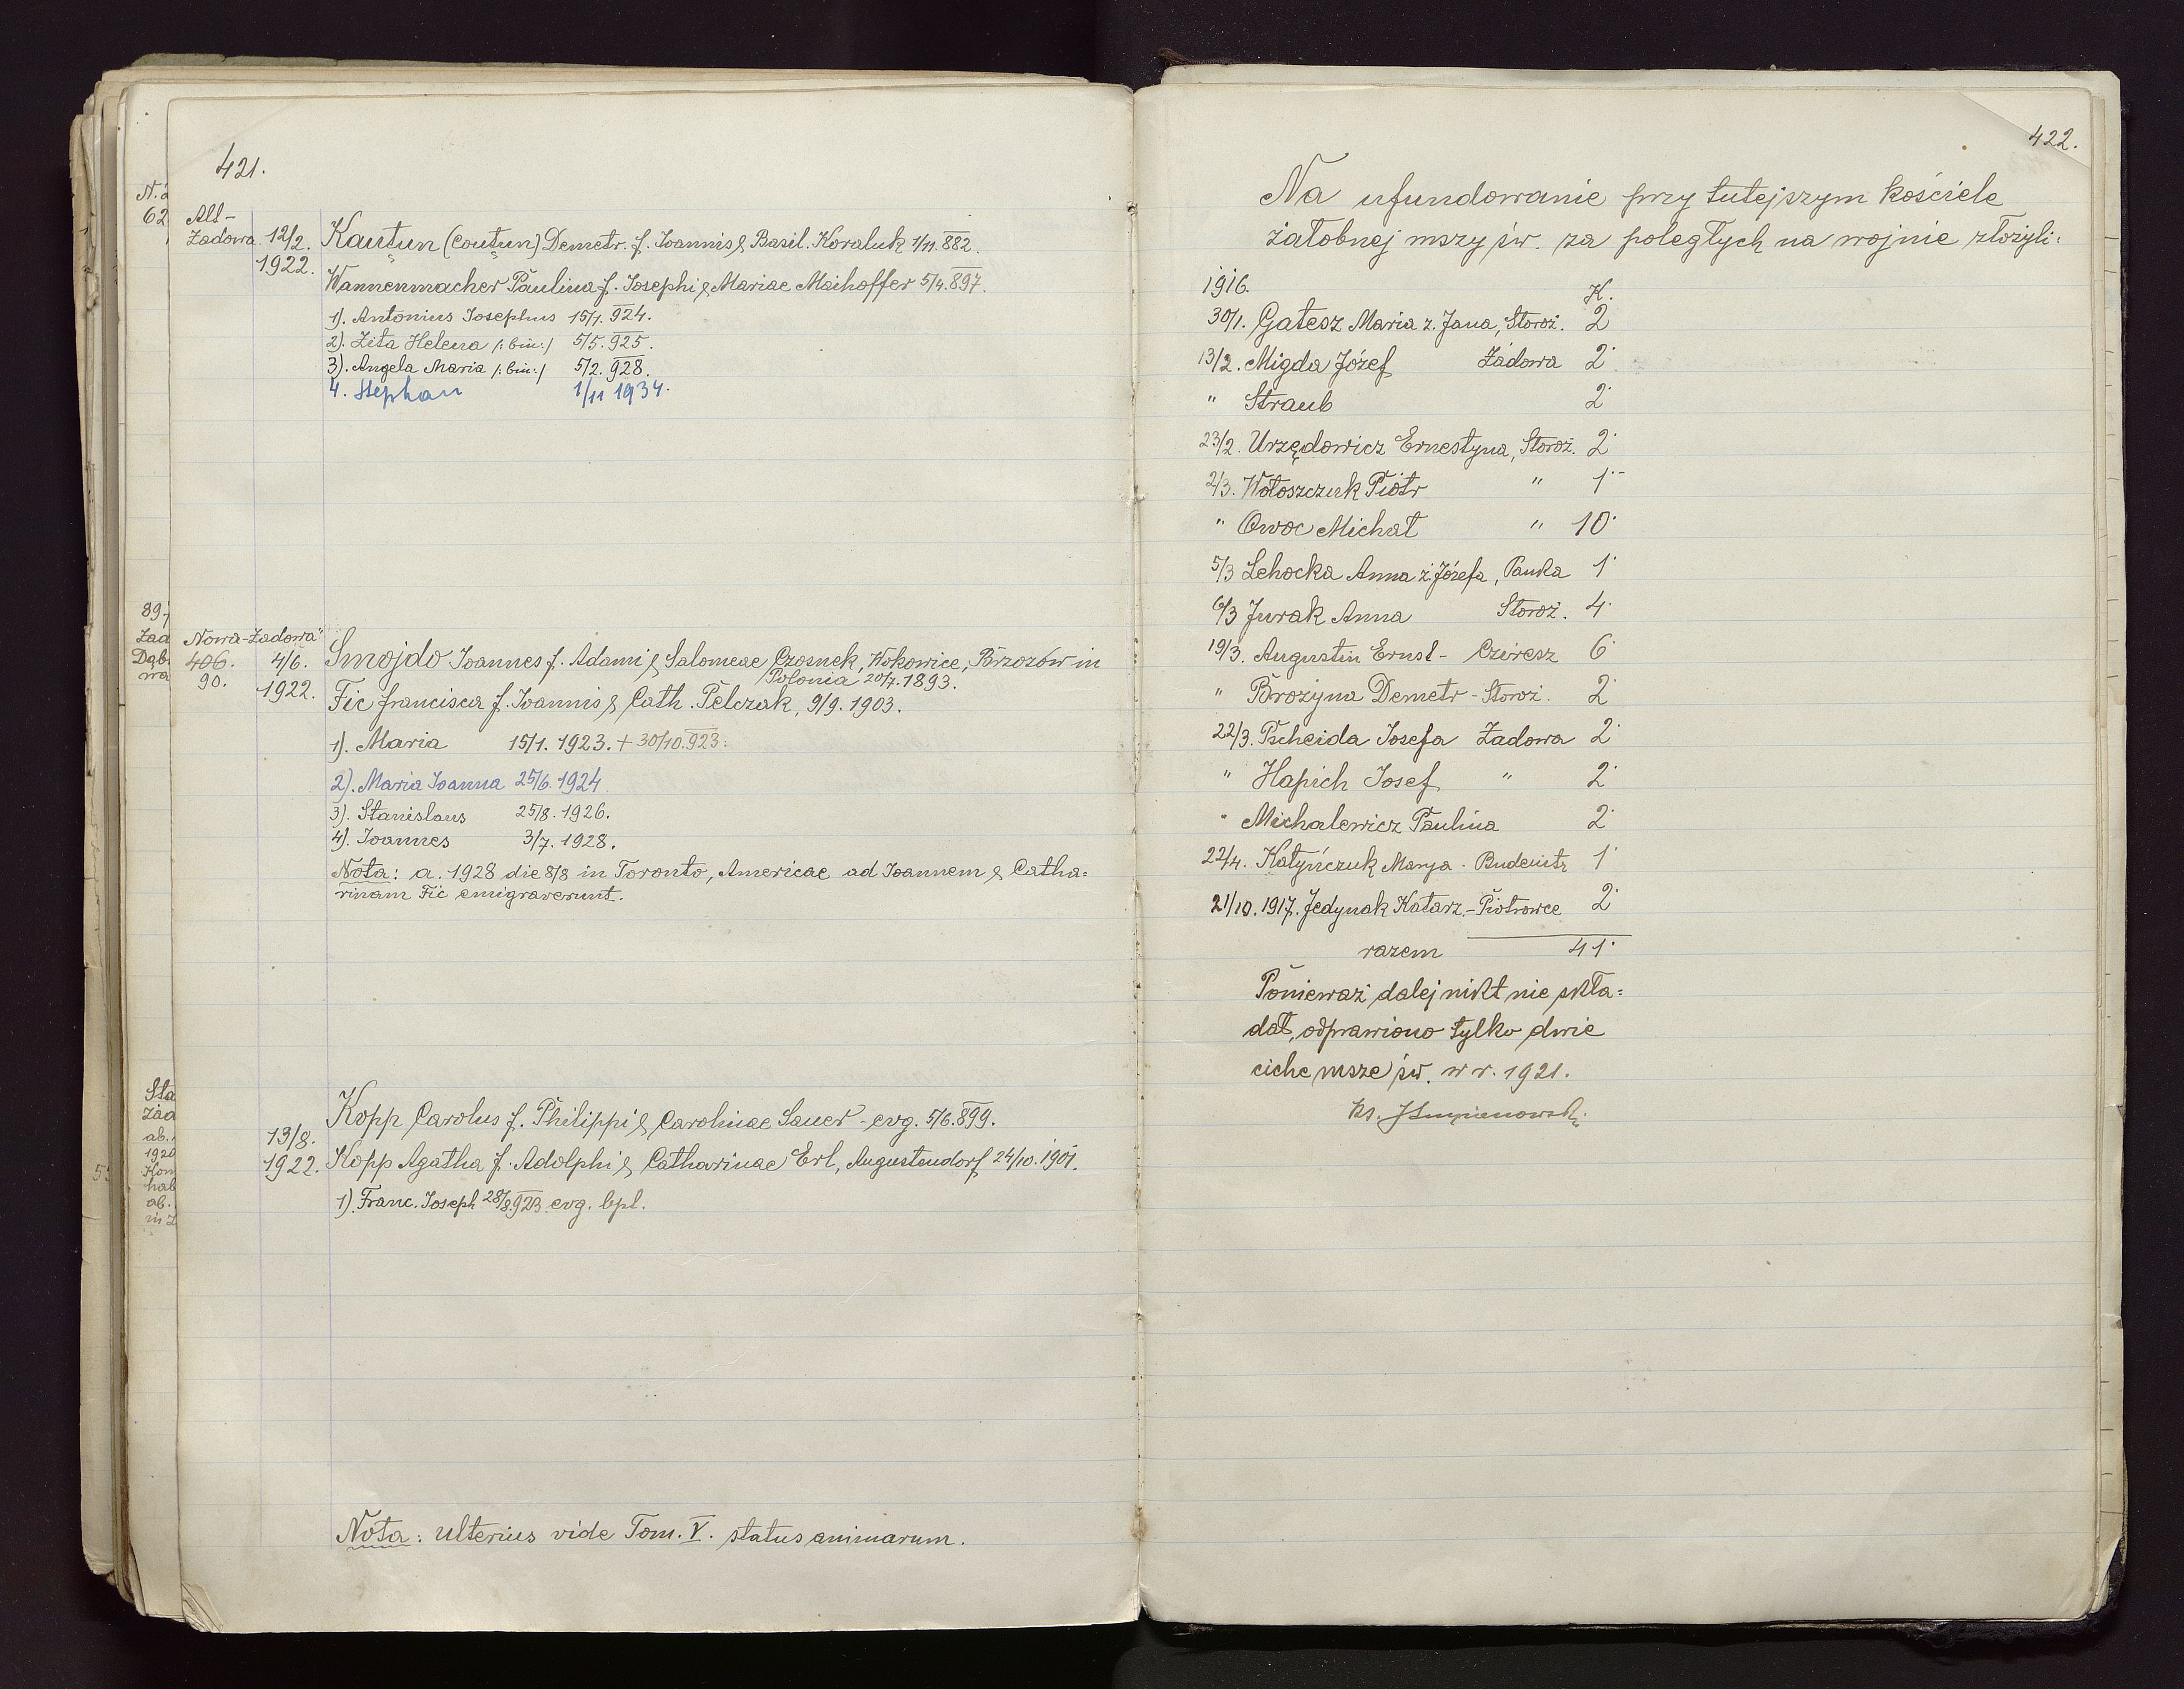 421.
Alt-
Zadowa. 12/2. 1922.
Kautun (Coutun) Demetr. f. Ioannis & Basil. Kowaluk 1/11. 882.
Wannenmacher Paulina f. Josephi & Mariae Maihoffer 5/4. 897.
1). Antonius Josephus 15/1. 924.
2). Zita Helena /: bin :/ 5/5. 925.
3). Angela Maria /: bin :/ 5/2. 928.
4. Stephan 1/11 1934.
Nowa-Zadowa
406. 4/6.
90. 1922.
Smojdo Ioannes f. Adami & Salomeae Czosnek, Wokowice, Brzozów in
Polonia 20/7. 1893.
Fic Francisca f. Ioannis & Cath. Pelczak, 9/9. 1903.
1). Maria 15/1. 1923. + 30/10. 923.
2). Maria Ioanna 25/6. 1924
3). Stanislaus 25/8. 1926.
4). Ioannes 3/7. 1928.
Nota: a. 1928 die 8/8 in Toronto, Americae ad Ioannem & Catha=
rinam Fic emigraverunt.
13/8.
1922.
Kopp Carolus f. Philippi & Carolinae Sauer - evg. 5/6. 899.
Kopp Agatha f. Adolphi & Catharinae Erl, Augustendorf 24/10. 1901.
1). Franc. Joseph 28/8. 923. evg. bpt.
Nota: ulterius vide Tom. V. status animarum.
422.
Na ufundowanie przy tutejszym kościele
żałobnej mszy św. za poległych na wojnie złożyli:
1916. K.
30/1. Gatesz Maria z. Jana, Storoż. 2
13/2. Migda Józef Zadowa 2
" Straub 2
23/2. Urzędowicz Ernestyna, Storoż. 2
2/3. Wołoszczuk Piotr " 1
" Owoc Michał " 10
5/3 Lehocka Anna ż. Józefa, Panka 1
6/3 Jurak Anna Storoż. 4
19/3. Augustin Ernst - Czeresz 6
" Brożyna Demetr - Storoż. 2
22/3. Pscheida Josefa Zadowa 2
" Hapich Josef " 2
" Michalewicz Paulina 2
22/4. Katyńczuk Marya. Budenitz 1
21/10. 1917. Jedynak Katarz. - Piotrowce 2
razem 41
Ponieważ dalej nikt nie skła=
dał, odprawiono tylko dwie
ciche msze św. w r. 1921.
ks.